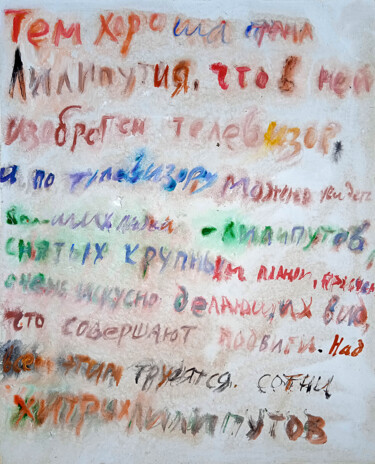 Тем хороша страна
Лилипутия, что в ней
изобретен телевизор,
и по телевизору можно видеть
- лилипутов,
снятых крупным планом, причем
очень искусно делающих вид,
что совершают подвиги. Над
всем этим трудятся сотни
хитрых лилипутов